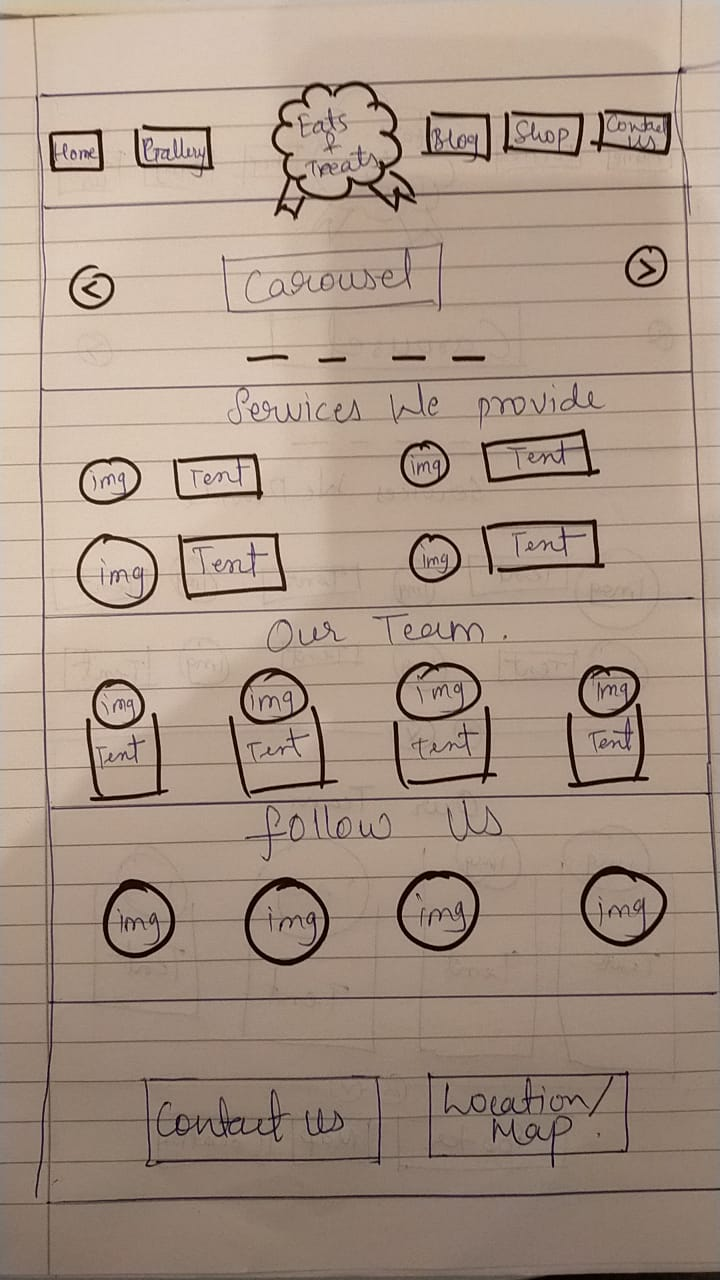 Home
Gallery
Eats
&
Treats
Blog
Shop
Contact
us
<
Carousel
>
Services We provide
img
Text
img
Text
img
Text
img
Text
Our Team.
img
img
img
img
Text
Text
Text
Text
follow Us
img
img
img
img
Contact us
Location/
Map.